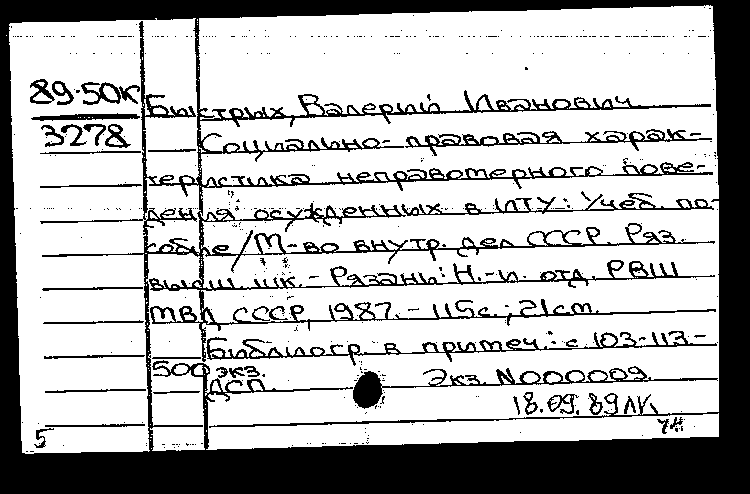 89-50к Быстрых, Валерий Иванович
3278 Социально-правовая харак-
теристика неправомерного пове-
дения осужденных в ИТУ: Учеб. по-
собие/М-во внутр. дел СССР. Ряз.
высш. шк. - Рязань: Н.-и. отд. РВШ
МВД СССР, 1987. - 115с.; 21см.
Библиогр. в примеч.: с 103-113 -
500 экз.
ДСП. Экз. N000009.
18.09.89ЛК.
5